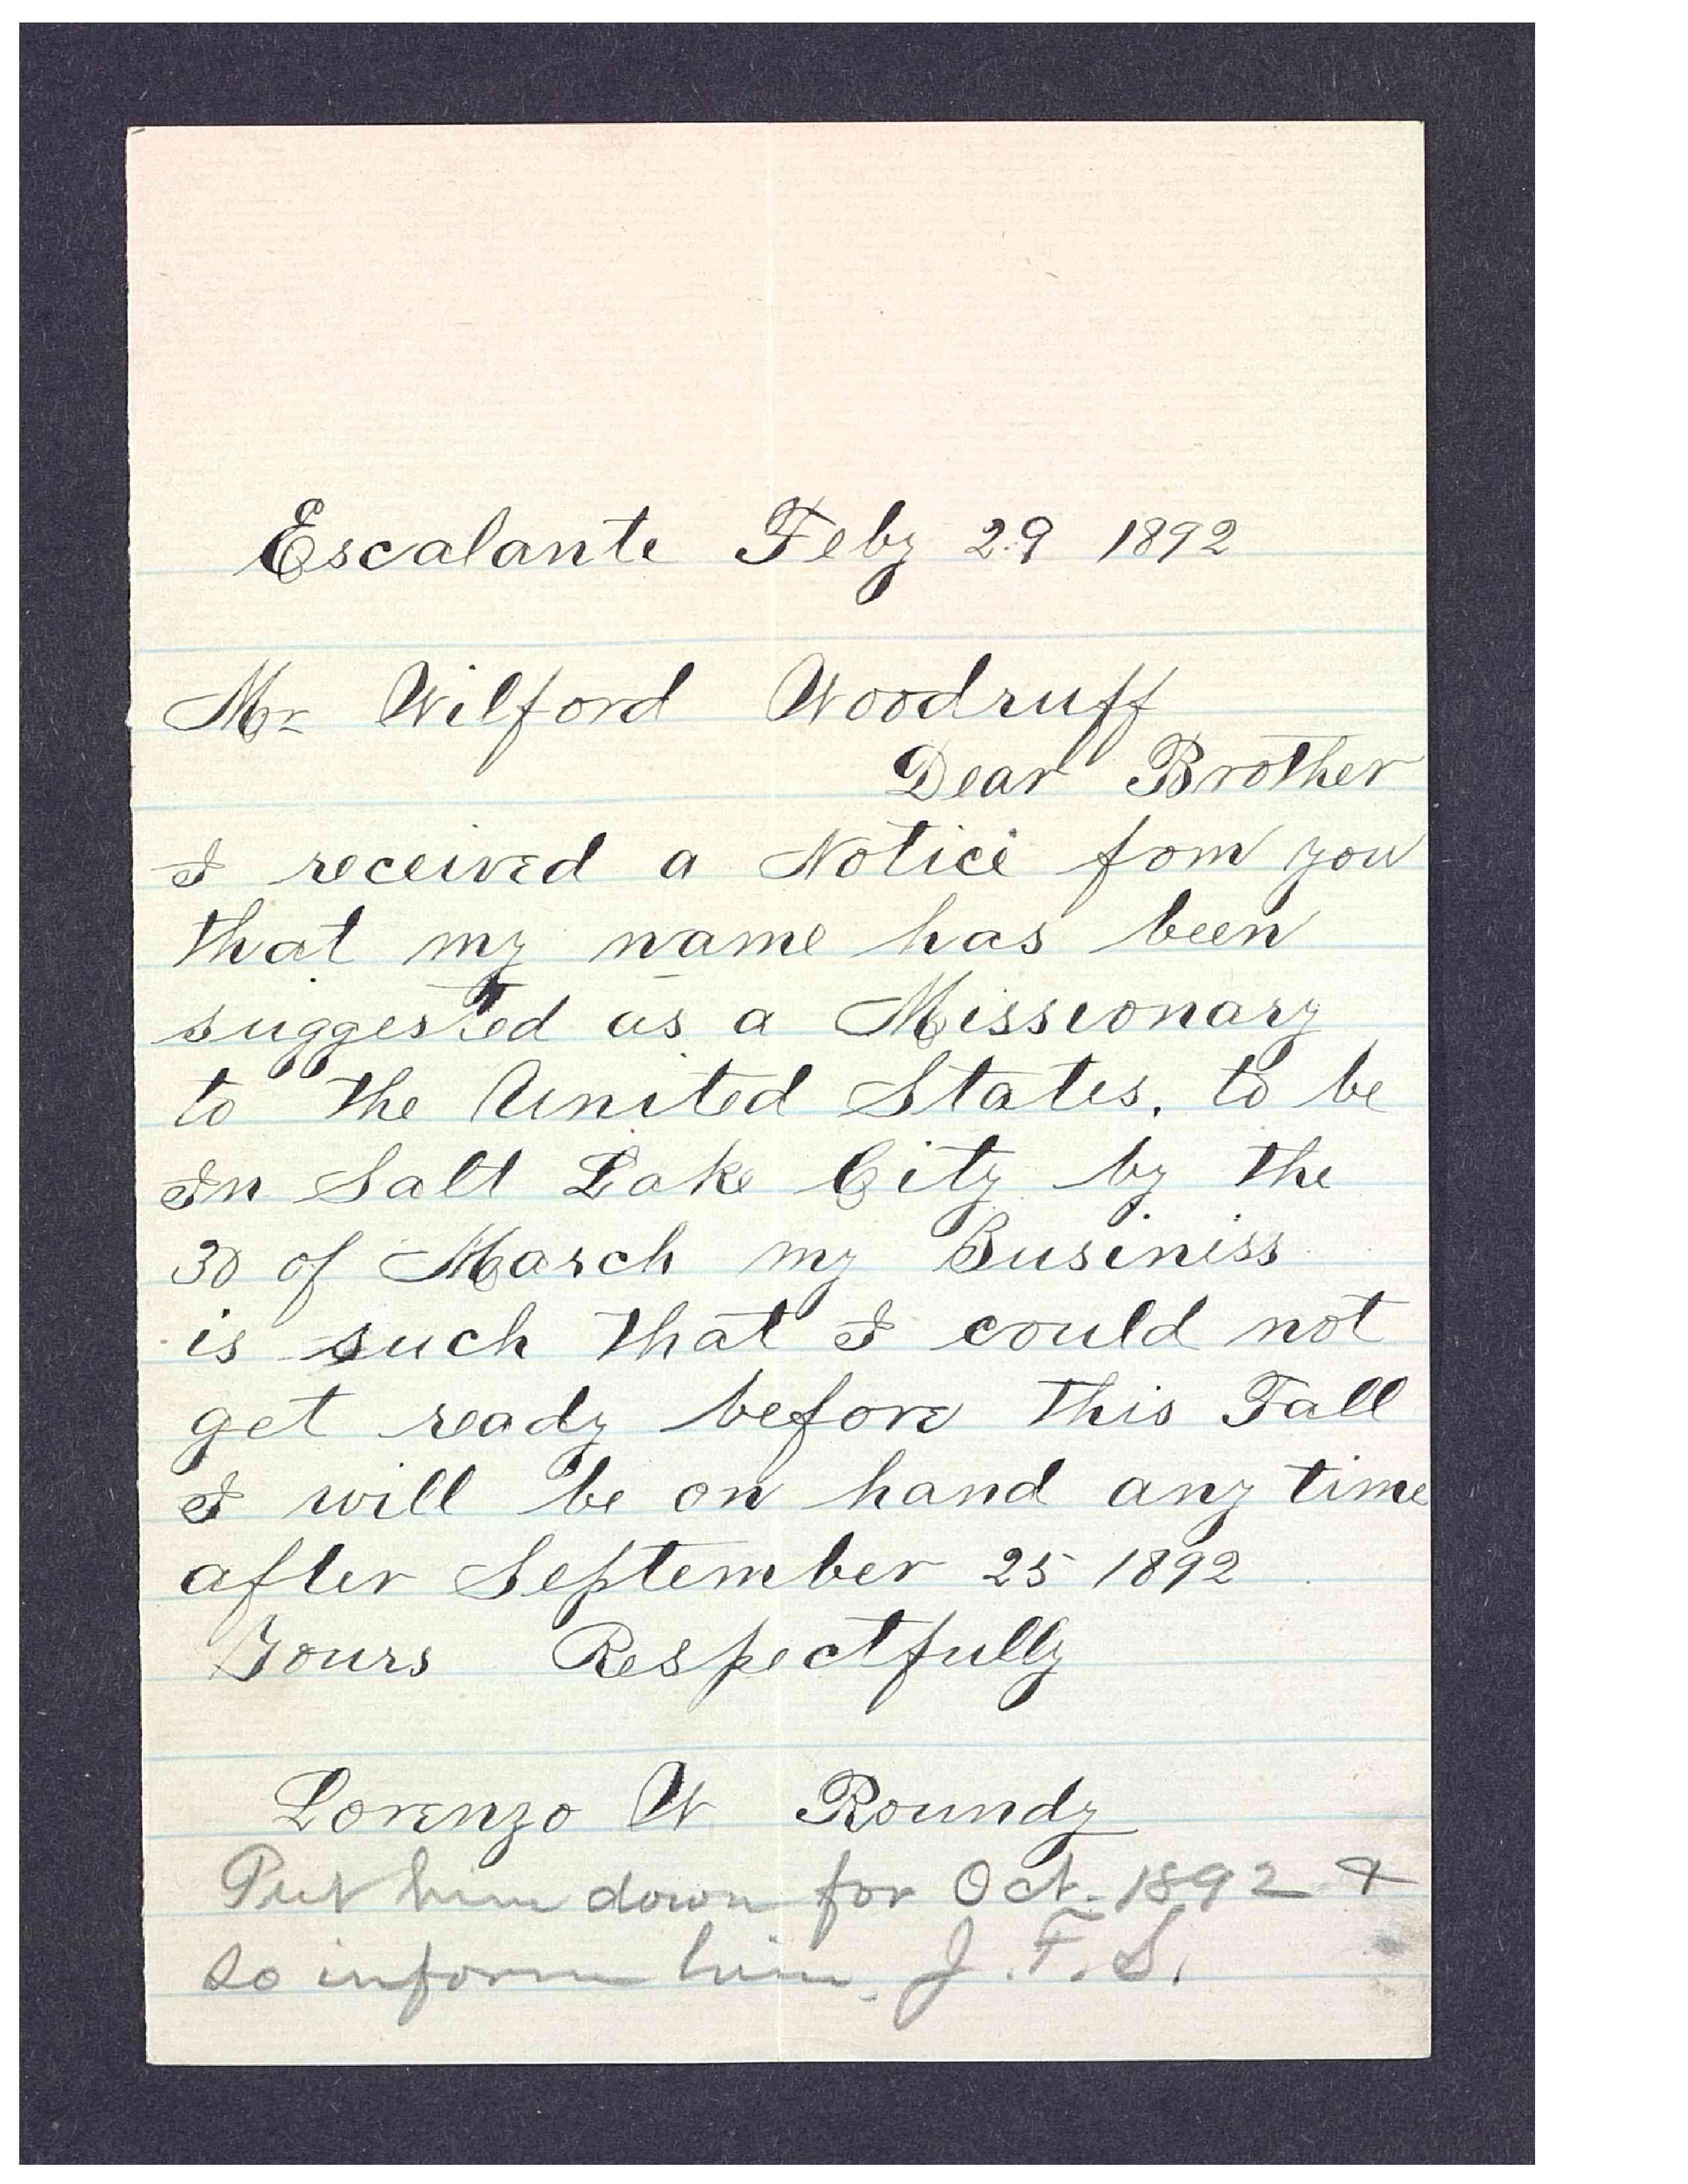 Escalante Feby 29 1892
Mr Wilford Woodruff
Dear Brother
I received a Notice fom you
that my name has been
suggested as a Missionary
to the United States. to be
In Salt Lake City by the
30 of March my Businiss
is such that I could not
get ready before this Fall
I will be on hand any time
after September 25 1892
Yours Respectfully
Lorenzo W Roundy
Put him down for Oct. 1892 &
so inform him. J. F. S.